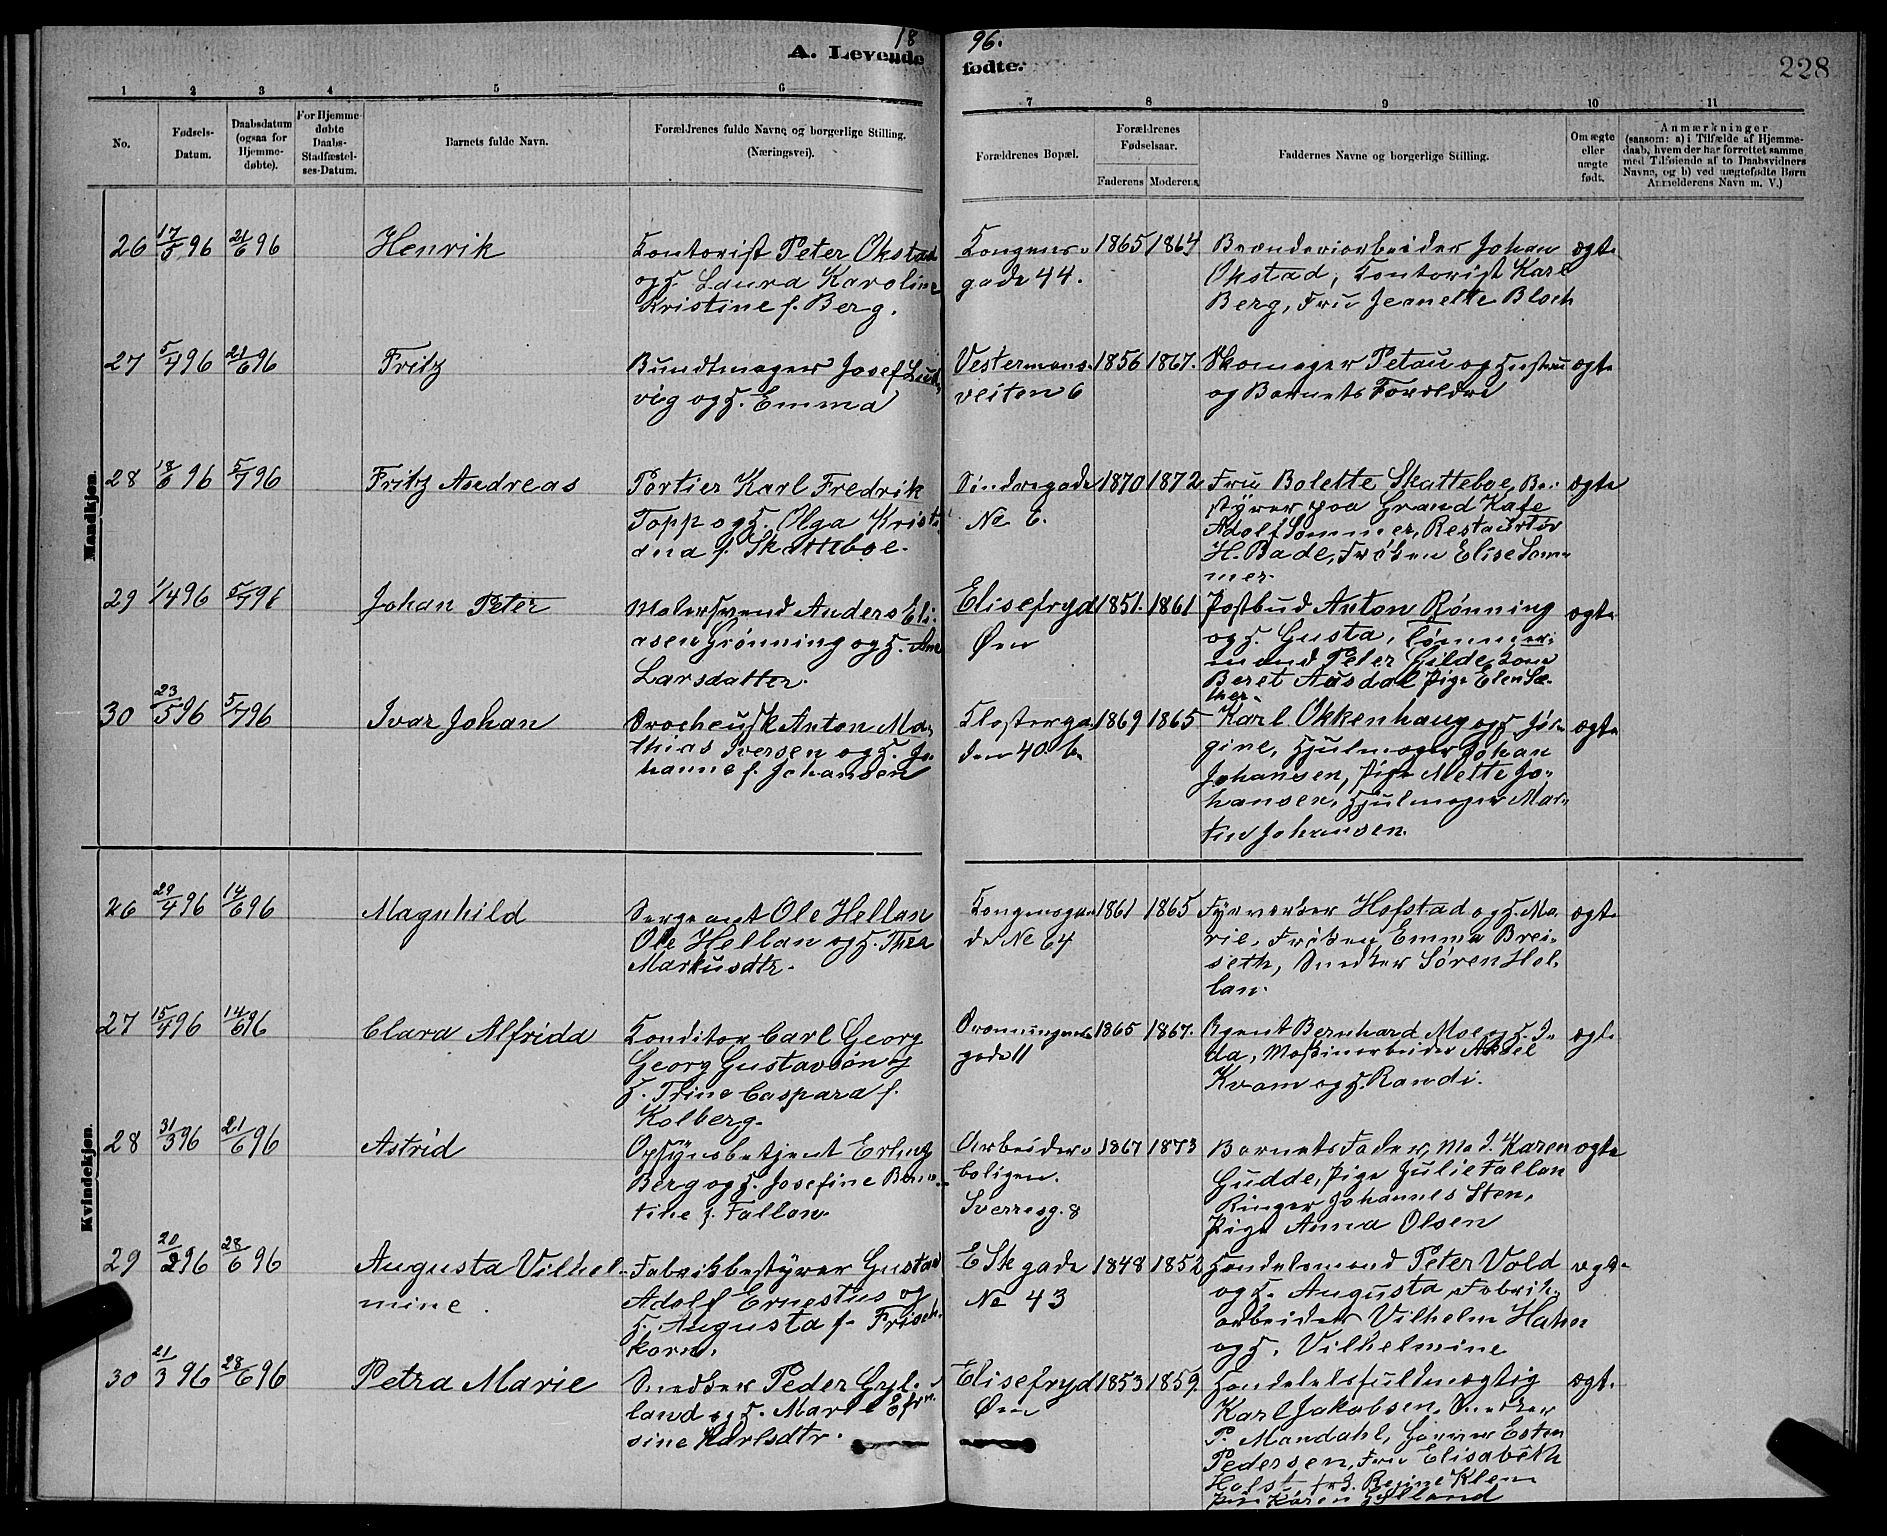 1896.
A. Levende fødte.
228
1 2 3 4 5 6 7 8 9 10 11
No.
Fødsels-
Datum.
Daabsdatum
(ogsaa for
Hjemme-
døbte).
For Hjemme-
døbte
Daabs-
Stadfæstel-
ses-Datum.
Barnets fulde Navn.
Forældrenes fulde Navne og borgerlige Stilling.
(Næringsvei).
Forældrenes Bopæl.
Forældrenes
Fødselsaar.
Faderens Moderens
Faddernes Navne og borgerlige Stilling.
Om ægte
eller
uægte
født.
Anmærkninger
(saasom: a) i Tilfælde af Hjemme-
daab, hvem der har forrettet samme
med Tilføiende af to Daabsvidners
Navne, og b) ved uægtefødte Børn
Anmelderens Navn m. V.)
Mandkjøn.
26 17/5 96 21/6 96 Henrik
Kontorist Peter Okstad
og H. Laura Karoline
Kristine f. Berg.
Kongens-
gade 44.
1865 1864
Brænderiarbeider Johan
Okstad, Kontorist Karl
Berg, Fru Jeanette Bloch
ægte
27 5/4 96 21/6 96 Fritz
Bundtmager Josef Lud-
vig og H. Emma
Vestermans-
veiten 6
1856 1867.
Skomager Petau og Hustru
og Barnets Forældre
ægte
28 18/6 96 5/7 96 Fritz Andreas
Portier Karl Fredrik
Topp og H. Olga Kristi-
ana f. Skatteboe.
Søndregade
No 6.
1870 1872
Fru Bolette Skatteboe, Be-
styrer paa Grand Kafe
Adolf Sommer, Restauratør
H. Bade, Frøken Elise Som-
mer.
ægte
29 1/4 96 5/7 96 Johan Peter
Malersvend Anders Eli-
asen Grønning og H. Ane
Larsdatter.
Elisefryd
Øen
1851. 1861
Postbud Anton Rønning
og H. Gusta, Tømmer-
mand Peter Gilde, Kone
Beret Ausdal Pige Elen Sæ-
ther.
ægte
30 23/5 96 5/7 96 Ivar Johan
Anton Ma-
thias Iversen og H. Jo-
hanne f. Johansen
Klosterga-
den 40 b.
1869 1865
Karl Okkenhaug og H. Jør-
gine, Hjulmager Johan
Johansen, Pige Mette Jo-
hansen, Hjulmager Mar-
tin Johansen.
ægte
Kvindekjøn.
26 29/4 96 14/6 96 Magnhild
Sergeant Ole Hellan
Ole Hellan og H. Thea
Markusdtr.
Kongensga-
de No 64
1861 1865
Fyrverker Hofstad og H. Ma-
rie, Frøken Emma Brei-
seth, Snedker Søren Hel-
lan.
ægte
27 15/4 96 14/6 96 Clara Alfrida
Konditor Carl Georg
Georg Gustavsøn og
H. Trine Caspara f.
Kolberg.
Dronningens-
gade 11
1865 1867.
Agent Bernhard Moe og H. I-
da, Maskinarbeider Aksel
Kvam og H. Randi.
ægte
28 31/3 96 21/6 96 Astrid
Opsynsbetjent Erling
Berg og H. Josefine Bern-
tine f. Fallan
Arbeider-
boligen.
Sverresg. 8
1867 1873
Barnets Fader, Mad. Karen
Gudde, Pige Julie Fallan
Ringer Johannes Sten,
Pige Anna Olsen
ægte
29 20/2 96 28/6 96 Augusta Vilhel-
mine.
Fabrikbestyrer Gustav
Adolf Ernestus og
H. Augusta f. Frisch-
korn.
E Skgade
No 43
1848 1852
Handelsmand Peter Vold
og H. Augusta, Fabrik-
arbeider Vilhelm Hahn
og H. Vilhelmine
ægte
30 21/3 96 28/6 96 Petra Marie
Snedker Peder Gyl-
land og H. Marie Efra-
sine Karlsdtr.
Elisefryd
Øen
1853 1859.
Handelsfuldmægtig
Karl Jakobsen, Snedker
P. Mandahl, Esten
Pedersen, Fru Elisabeth
Holst, Regine Klem
Pige Karen Gylland
ægte